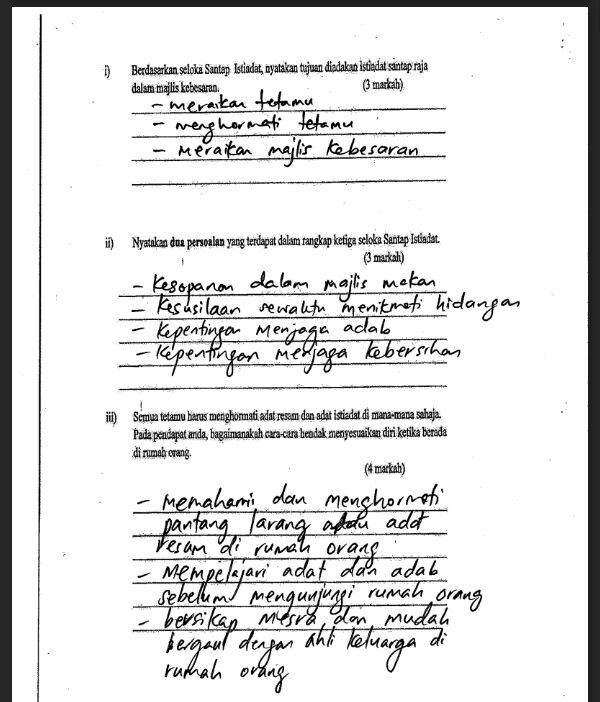 i) Berdasarkan seloka Santap Istiadat, nyatakan tujuan diadakan istiadat santap raja
dalam majlis kebesaran. (3 markah)
- meraikan tetamu
- menghormati tetamu
- Meraikan majlis Kebesaran
ii) Nyatakan dua persoalan yang terdapat dalam rangkap ketiga seloka Santap Istiadat.
(3 markah)
- Kesopanan dalam majlis makan
- Kesusilaan sewaktu menikmati hidangan
- Kepentingan Menjaga adab
- Kepentingan menjaga kebersihan
iii) Semua tetamu harus menghormati adat resam dan adat istiadat di mana-mana sahaja.
Pada pendapat anda, bagaimanakah cara-cara hendak menyesuaikan diri ketika berada
di rumah orang.
(4 markah)
- Memahami dan Menghormati
pantang larang atau adat
resam di rumah orang
- Mempelajari adat dan adab
sebelum mengunjungi rumah orang
- bersikap mesra dan mudah
bergaul dengan ahli keluarga di
rumah orang